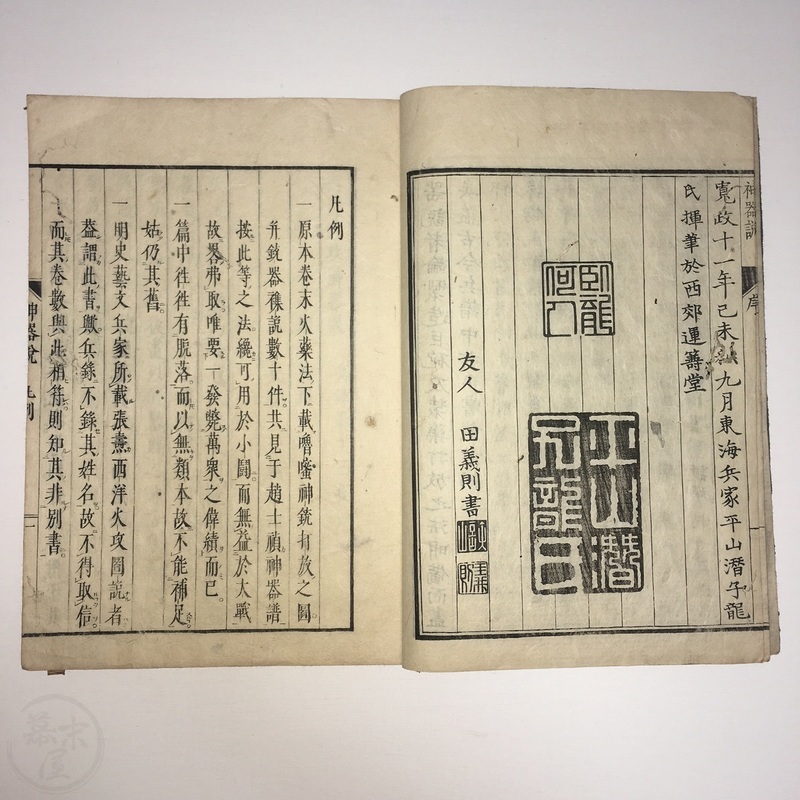 神器説
序
寛政十一年己未秋九月東海兵家平山潛子龍
氏揮筆於西郊運籌堂
臥龍
何人
平山潛
友人　田義則書
凡例
一原本卷末火藥法下載嚕蜜神銃打放之圖
并銃器襍説數十件共見于趙士禎神器譜
按此等之法纔可用於小鬪而無益於大戰
故畧弗取唯要一發斃萬衆之偉績而已
一篇中徃徃有脱落而以無類本故不能補足
姑仍其舊
一明史藝文兵家所載張燾西洋火攻圖説者
葢謂此書歟兵錄不錄其姓名故不得取信
而其卷數與此相符則知其非別書
神器説　凡例
一
幕末屋